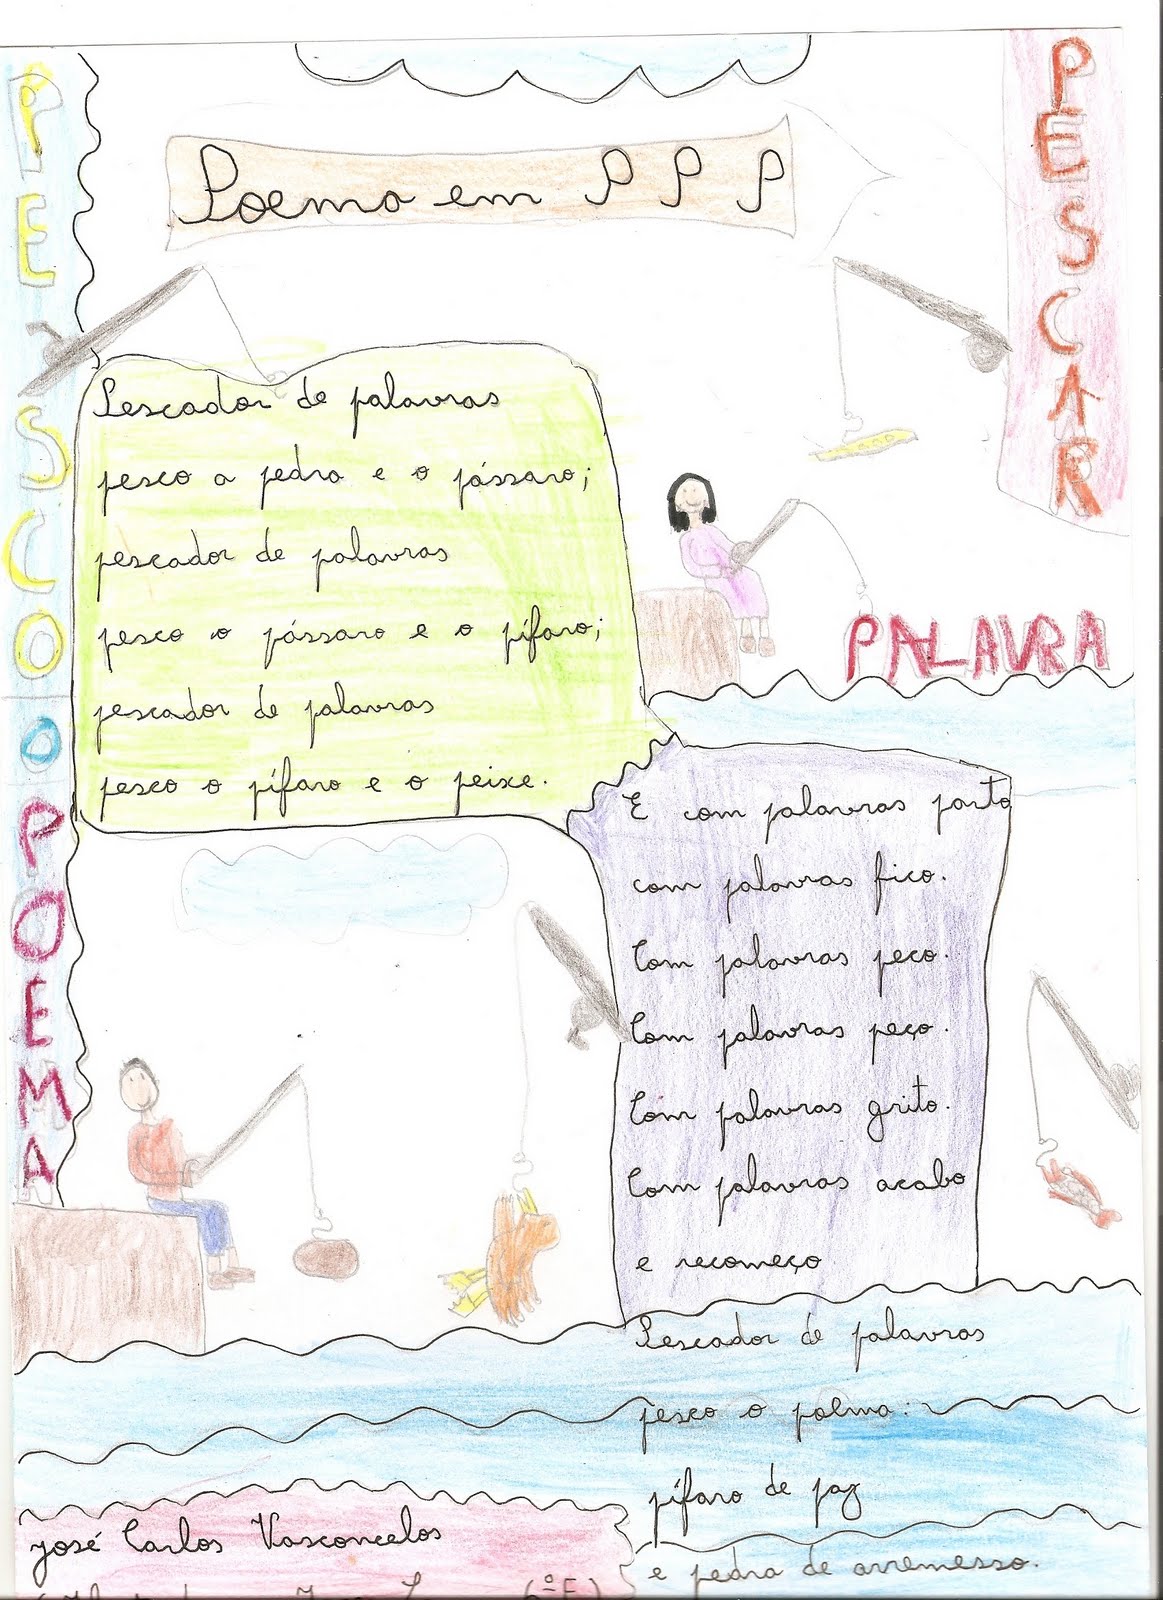 PESCO O POEMA
Poema em P P P
PESCAR
Pescador de palavras
pesco a pedra e o pássaro;
pescador de palavras
pesco o pássaro e o pífaro;
pescador de palavras
pesco o pífaro e o peixe.
PALAVRA
E com palavras parto
com palavras fico.
Com palavras peco.
Com palavras peço.
Com palavras grito.
Com palavras acabo
e recomeço
Pescador de palavras
pesco o palma:
pífaro de paz
e pedra de arremesso.
José Carlos Vasconcelos